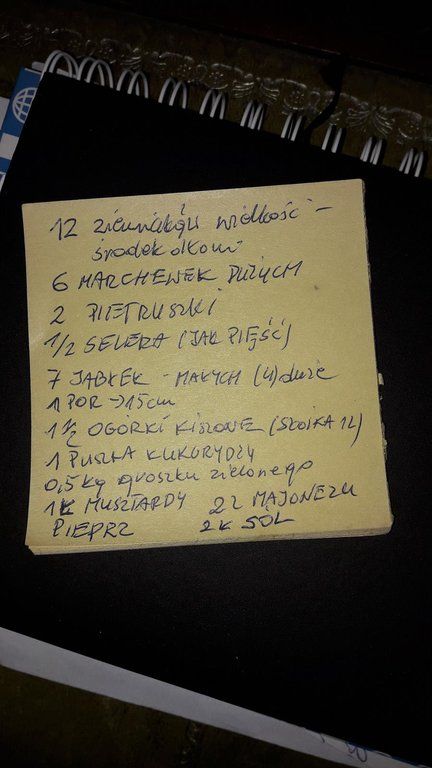 12 ziemniaków wielkość -
środek dłoni
6 MARCHEWEK DUŻYCH
2 PIETRUSZKI
1/2 SELERA (JAK PIĘŚĆ)
7 JABŁEK - MAŁYCH (4) duże
1 POR → 15cm
1 1/2 OGÓRKI KISZONE (SŁOIKA 1L)
1 PUSZKA KUKURYDZY
0,5 kg groszku zielonego
1Ł MUSZTARDY 2Ł MAJONEZU
PIEPRZ 2Ł SÓL